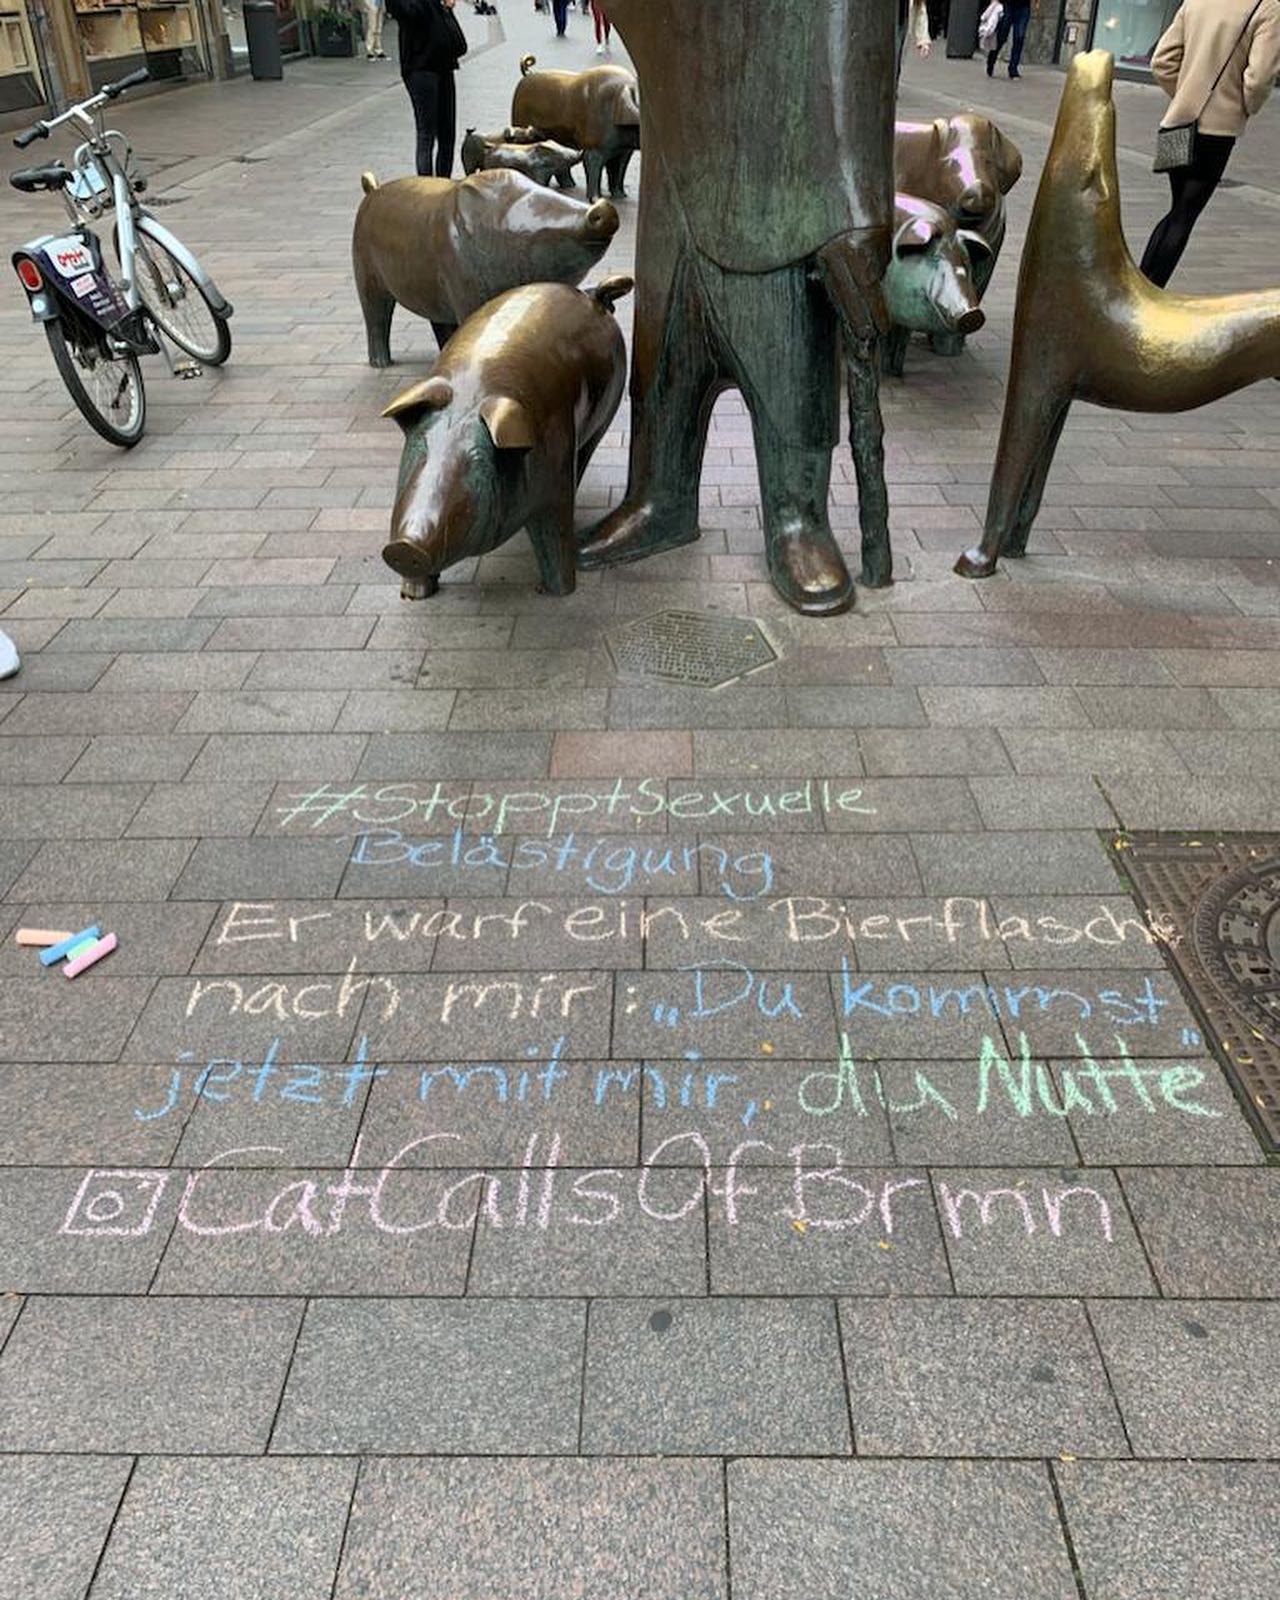 #StopptSexuelle
Belästigung
Er warf eine Bierflasche
nach mir: „Du kommst
jetzt mit mir, du Nutte"
CatCallsOfBrmn